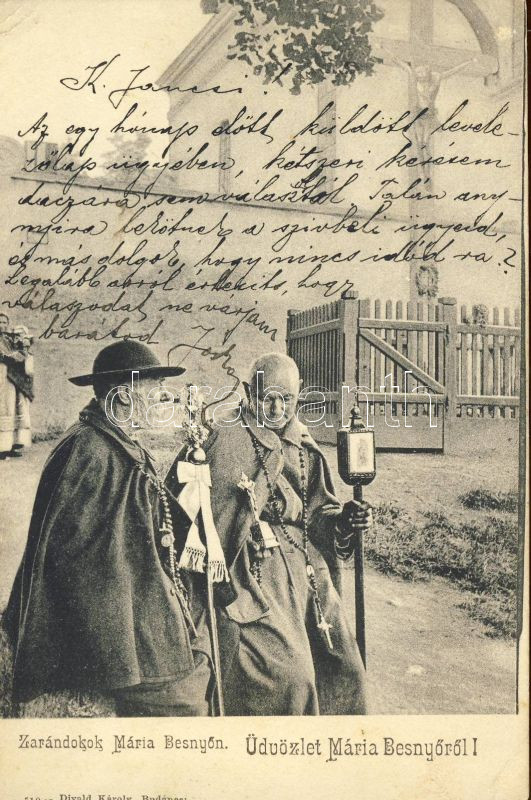 K. Jancsi!
Az egy hónap előtt küldött levele-
zőlap ügyében, kétszeri kérésem
daczára sem választál. Talán any-
nyira lekötnek a szivbeli ügyeid,
és más dolgok, hogy nincs időd rá?
Legalább arról értesits, hogy
válaszodat ne várjam
barátod Jóska
darabanth
Zarándokok Mária Besnyőn. Üdvözlet Mária Besnyőről!
Divald Károly, Budapest